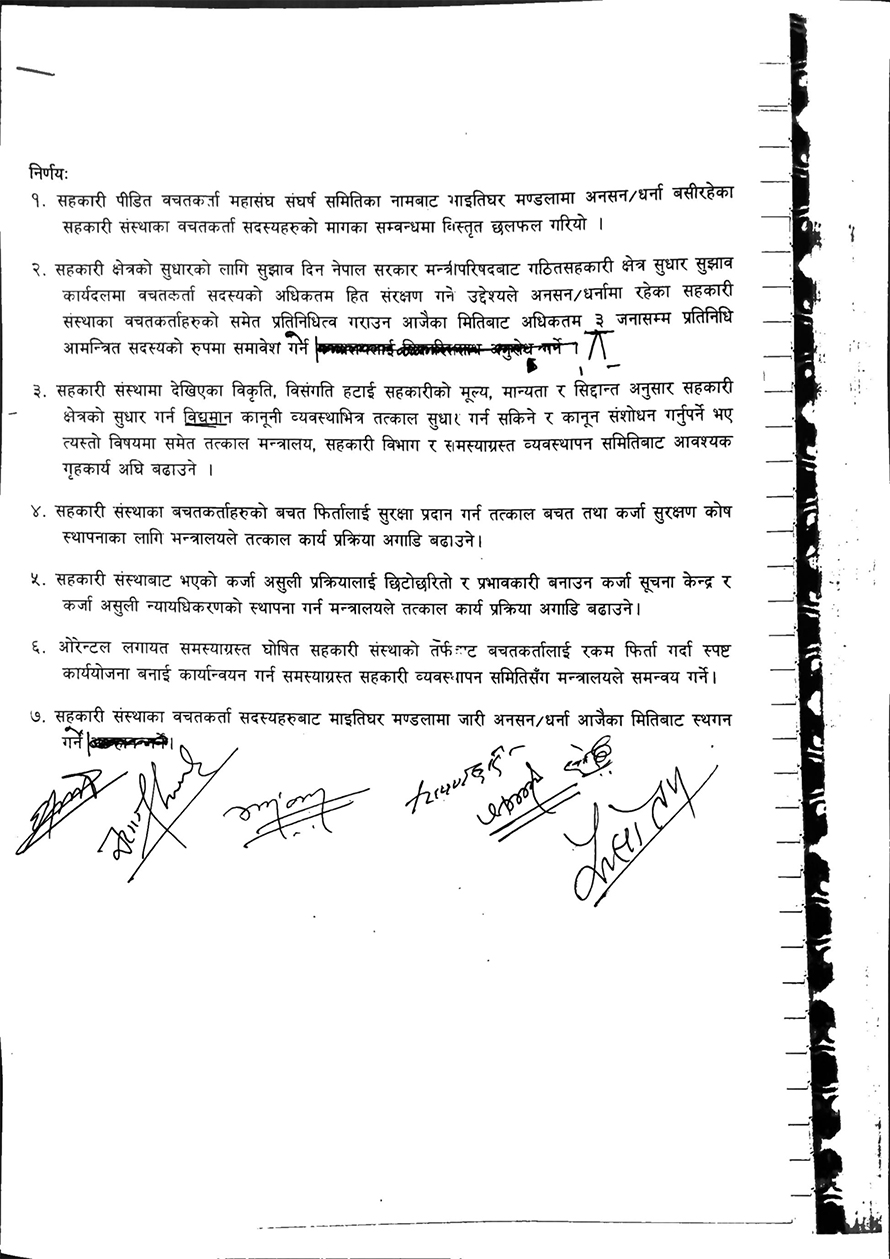 निर्णयः
१. सहकारी पीडित वचतकर्ता महासंघ संघर्ष समितिका नामबाट माइतिघर मण्डलामा अनसन/धर्ना बसीरहेका
सहकारी संस्थाका वचतकर्ता सदस्यहरुको मागका सम्बन्धमा विस्तृत छलफल गरियो ।
२. सहकारी क्षेत्रको सुधारको लागि सुझाव दिन नेपाल सरकार मन्त्रीपरिषदबाट गठितसहकारी क्षेत्र सुधार सुझाव
कार्यदलमा वचतकर्ता सदस्यको अधिकतम हित संरक्षण गर्ने उद्देश्यले अनसन/धर्नामा रहेका सहकारी
संस्थाका वचतकर्ताहरुको समेत प्रतिनिधित्व गराउन आजैका मितिबाट अधिकतम ३ जनासम्म प्रतिनिधि
आमन्त्रित सदस्यको रुपमा समावेश गर्ने
३. सहकारी संस्थामा देखिएका विकृति, विसंगति हटाई सहकारीको मूल्य, मान्यता र सिद्दान्त अनुसार सहकारी
क्षेत्रको सुधार गर्न विद्यमान कानूनी व्यवस्थाभित्र तत्काल सुधार गर्न सकिने र कानून संशोधन गर्नुपर्ने भए
त्यस्तो विषयमा समेत तत्काल मन्त्रालय, सहकारी विभाग र समस्याग्रस्त व्यवस्थापन समितिबाट आवश्यक
गृहकार्य अघि बढाउने ।
४. सहकारी संस्थाका बचतकर्ताहरुको बचत फिर्तालाई सुरक्षा प्रदान गर्न तत्काल बचत तथा कर्जा सुरक्षण कोष
स्थापनाका लागि मन्त्रालयले तत्काल कार्य प्रक्रिया अगाडि बढाउने।
५. सहकारी संस्थाबाट भएको कर्जा असुली प्रक्रियालाई छिटोछरितो र प्रभावकारी बनाउन कर्जा सूचना केन्द्र र
कर्जा असुली न्यायधिकरणको स्थापना गर्न मन्त्रालयले तत्काल कार्य प्रक्रिया अगाडि बढाउने।
६. ओरेन्टल लगायत समस्याग्रस्त घोषित सहकारी संस्थाको तर्फबाट बचतकर्तालाई रकम फिर्ता गर्दा स्पष्ट
कार्ययोजना बनाई कार्यान्वयन गर्न समस्याग्रस्त सहकारी व्यवस्थापन समितिसँग मन्त्रालयले समन्वय गर्ने।
७. सहकारी संस्थाका वचतकर्ता सदस्यहरुबाट माइतिघर मण्डलामा जारी अनसन/धर्ना आजैका मितिबाट स्थगन
गर्ने ।